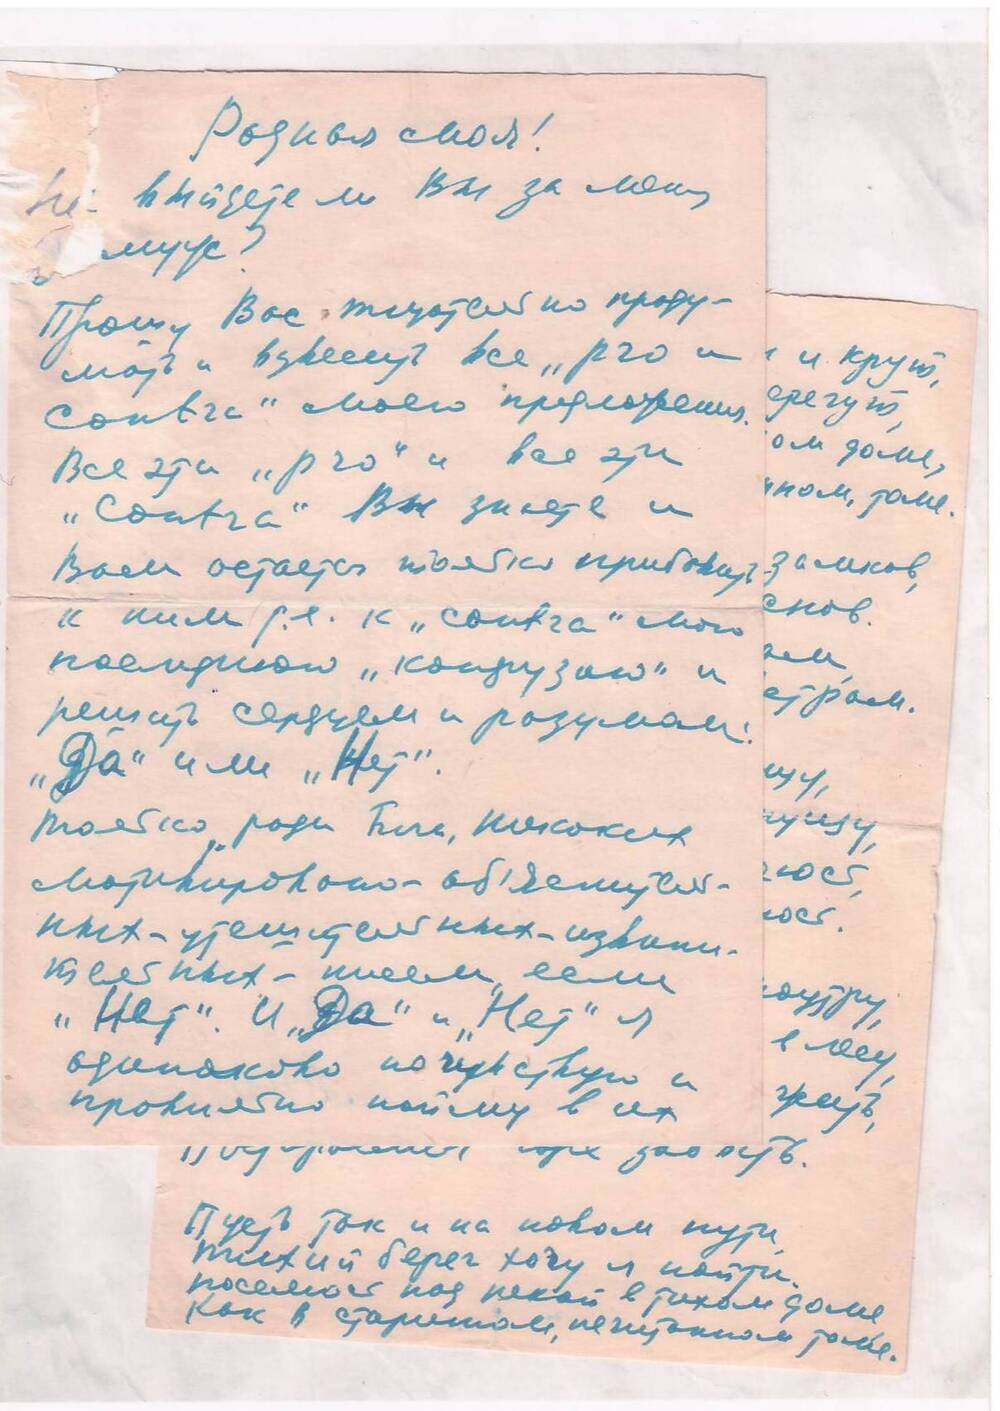 Родная моя!
Не выйдете ли Вы за меня
замуж?
Прошу Вас тщательно проду-
мать и взвесить все „pro и
contra“ моего предложения.
Все эти „pro“ и все эти
„contra“ Вы знаете и
Вам остается только прибавить
к ним т.е. к „contra“ мою
последнюю „контузию“ и
решить сердцем и разумом:
„Да“ или „Нет“.
Только, ради Бога, никаких
мотивировано-объяснитель-
ных-утешительных-извини-
тельных-писем, если
„Нет“. И „Да“ и „Нет“ я
одинаково почувствую и
правильно пойму в их
и крут,
ерегут,
ом доме,
нном, томе.
замков,
снов.
ом,
етром.
щу,
ющу,
ноутру,
в лесу,
жить,
зло есть.
Пусть так и на новом пути,
тихий берег хочу я найти.
поселюсь под некой в тихом доме
Как в старинном, нечитанном томе.